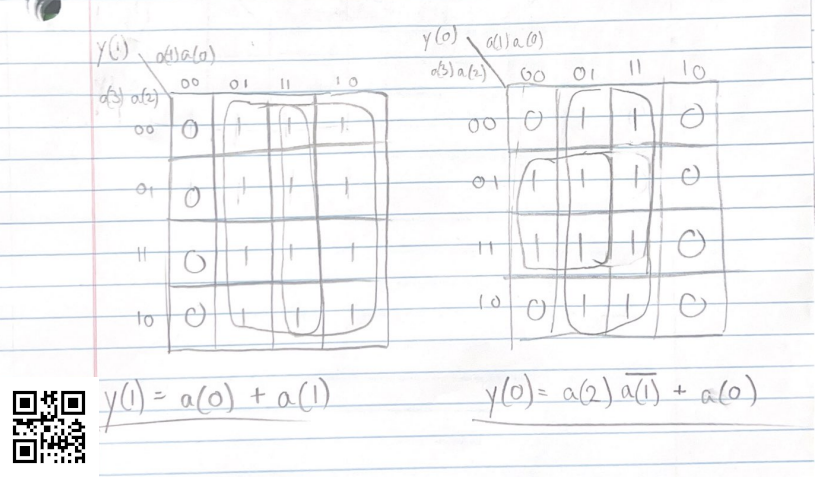 y(1) a(1)a(0)
a(3) a(2) 00 01 11 10
00 0 1 1 1
01 0 1 1 1
11 0 1 1 1
10 0 1 1 1
y(1) = a(0) + a(1)
y(0) a(1)a(0)
a(3)a(2) 00 01 11 10
00 0 1 1 0
01 1 1 1 0
11 1 1 1 0
10 0 1 1 0
y(0) = a(2) a̅(̅1̅)̅ + a(0)